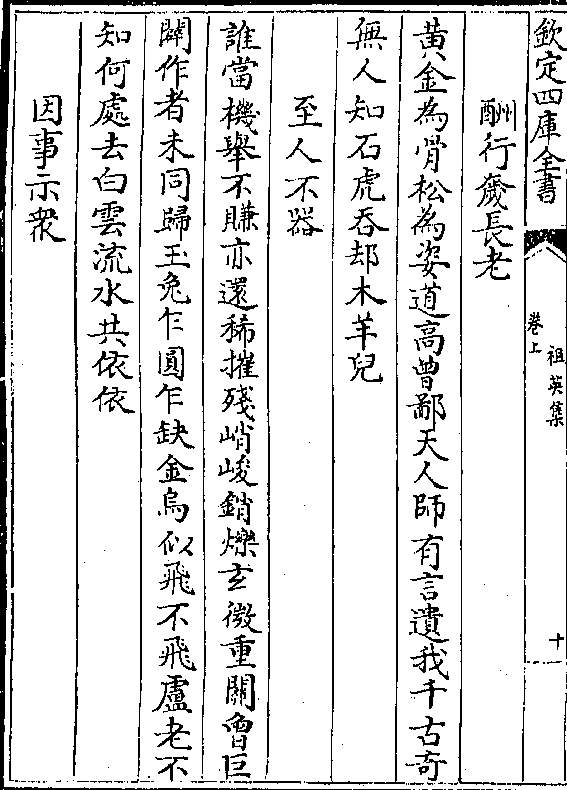 欽定四庫全書
祖英集
卷上
十
酬行㡬長老
黃金為骨松為姿道高曽鄙天人師有言遺我千古奇
無人知石虎吞却木羊兒
至人不器
誰當機舉不賺亦還稀摧殘峭峻銷爍玄微重關曾巨
闢作者未同歸玉兔乍圓乍缺金烏似飛不飛盧老不
知何處去白雲流水共依依
因事示衆